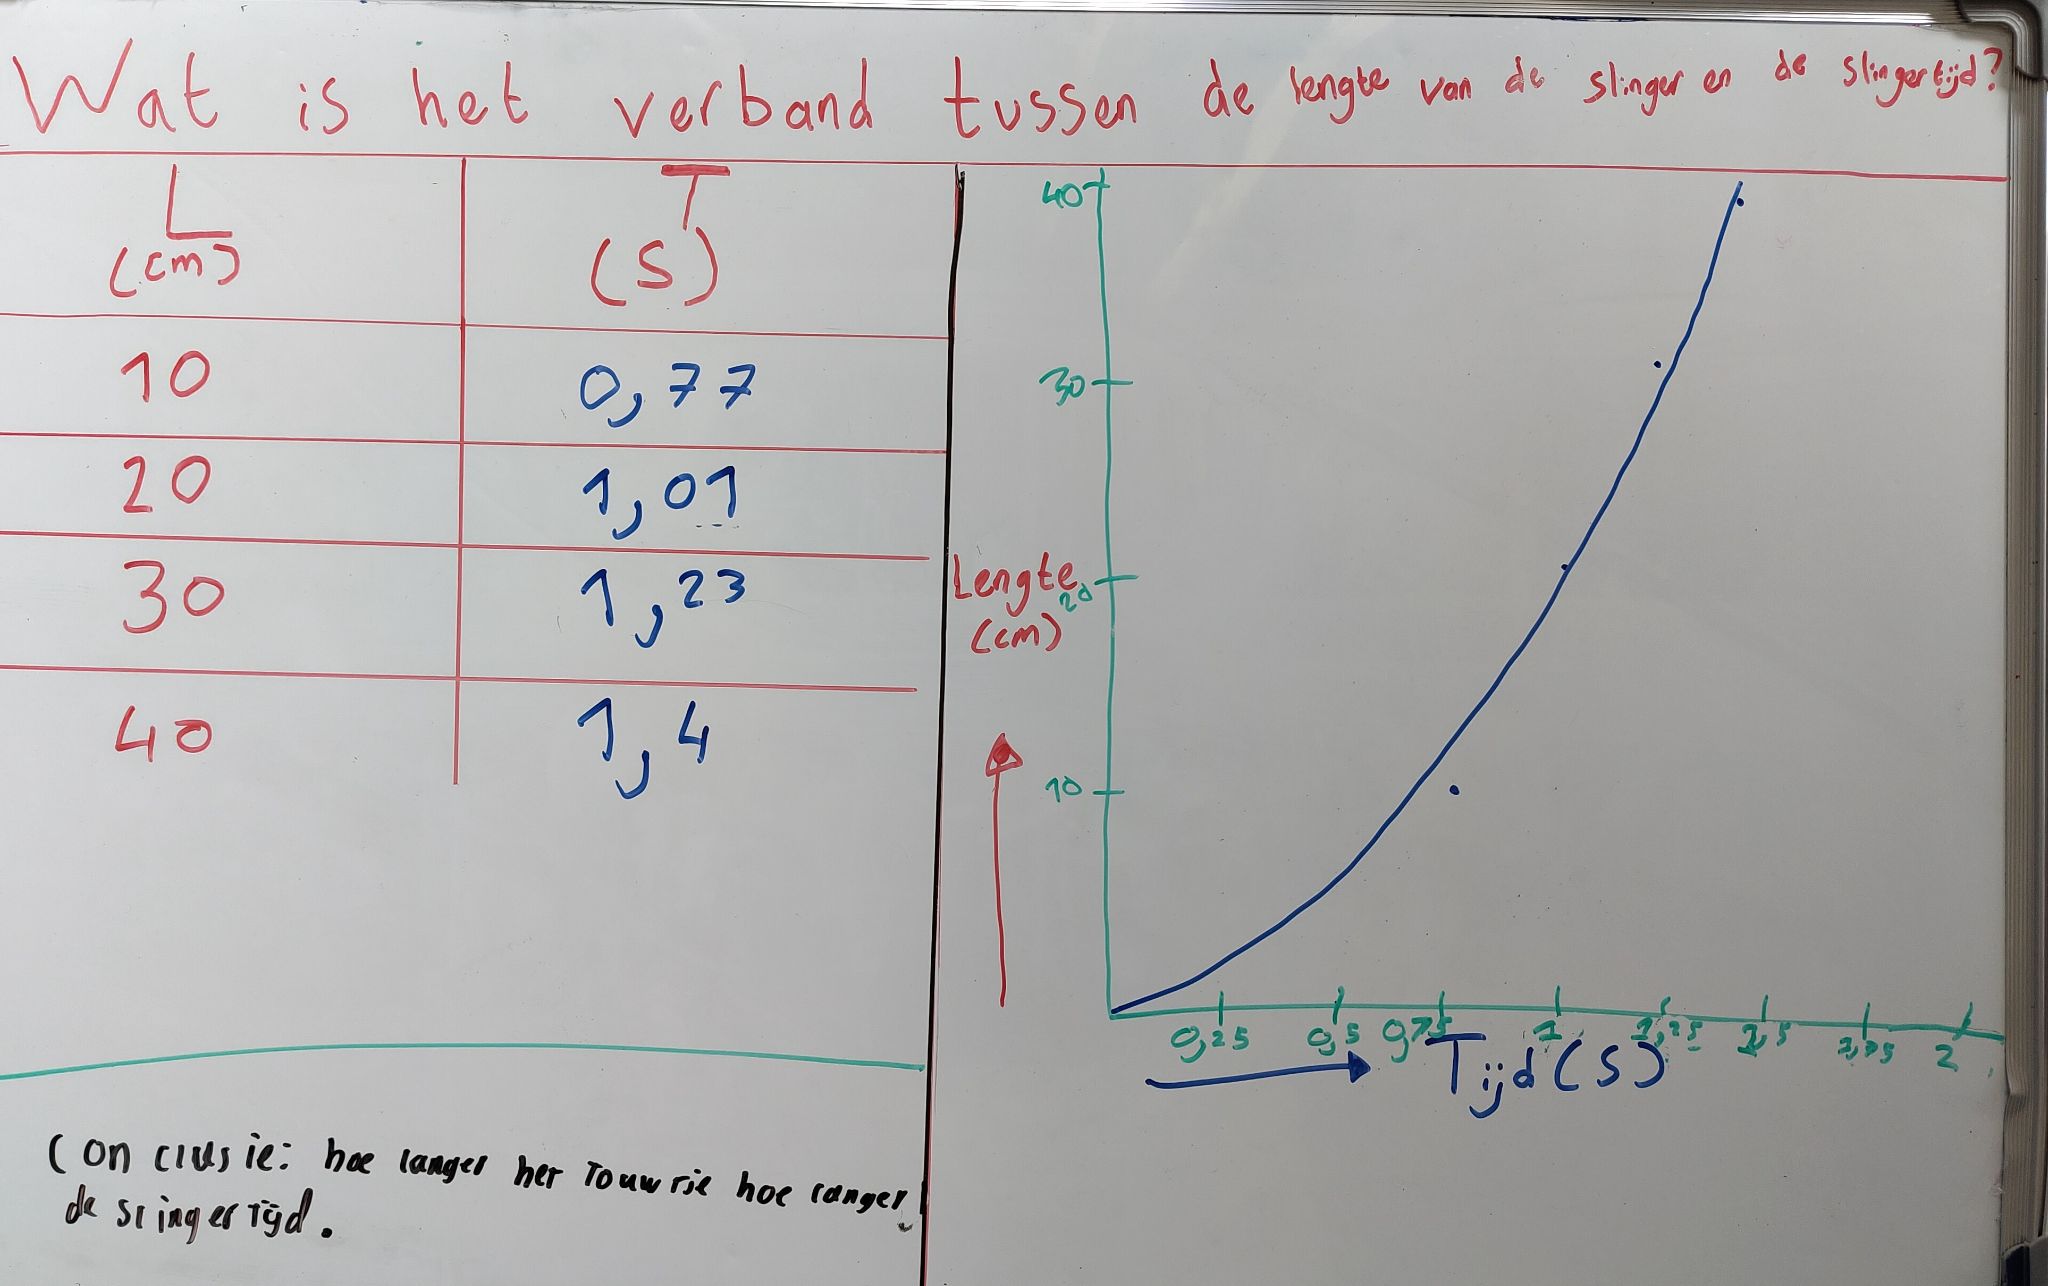 Wat is het verband tussen de lengte van de slinger en de slingertijd?
L T
(cm) (s)
10 0,77
20 1,01
30 1,23
40 1,4
Conclusie: hoe langer het touwtje hoe langer
de slingertijd.
40
30
Lengte
20
(cm)
10
0,25 0,5 0,75 1 1,25 1,5 1,75 2
Tijd (s)